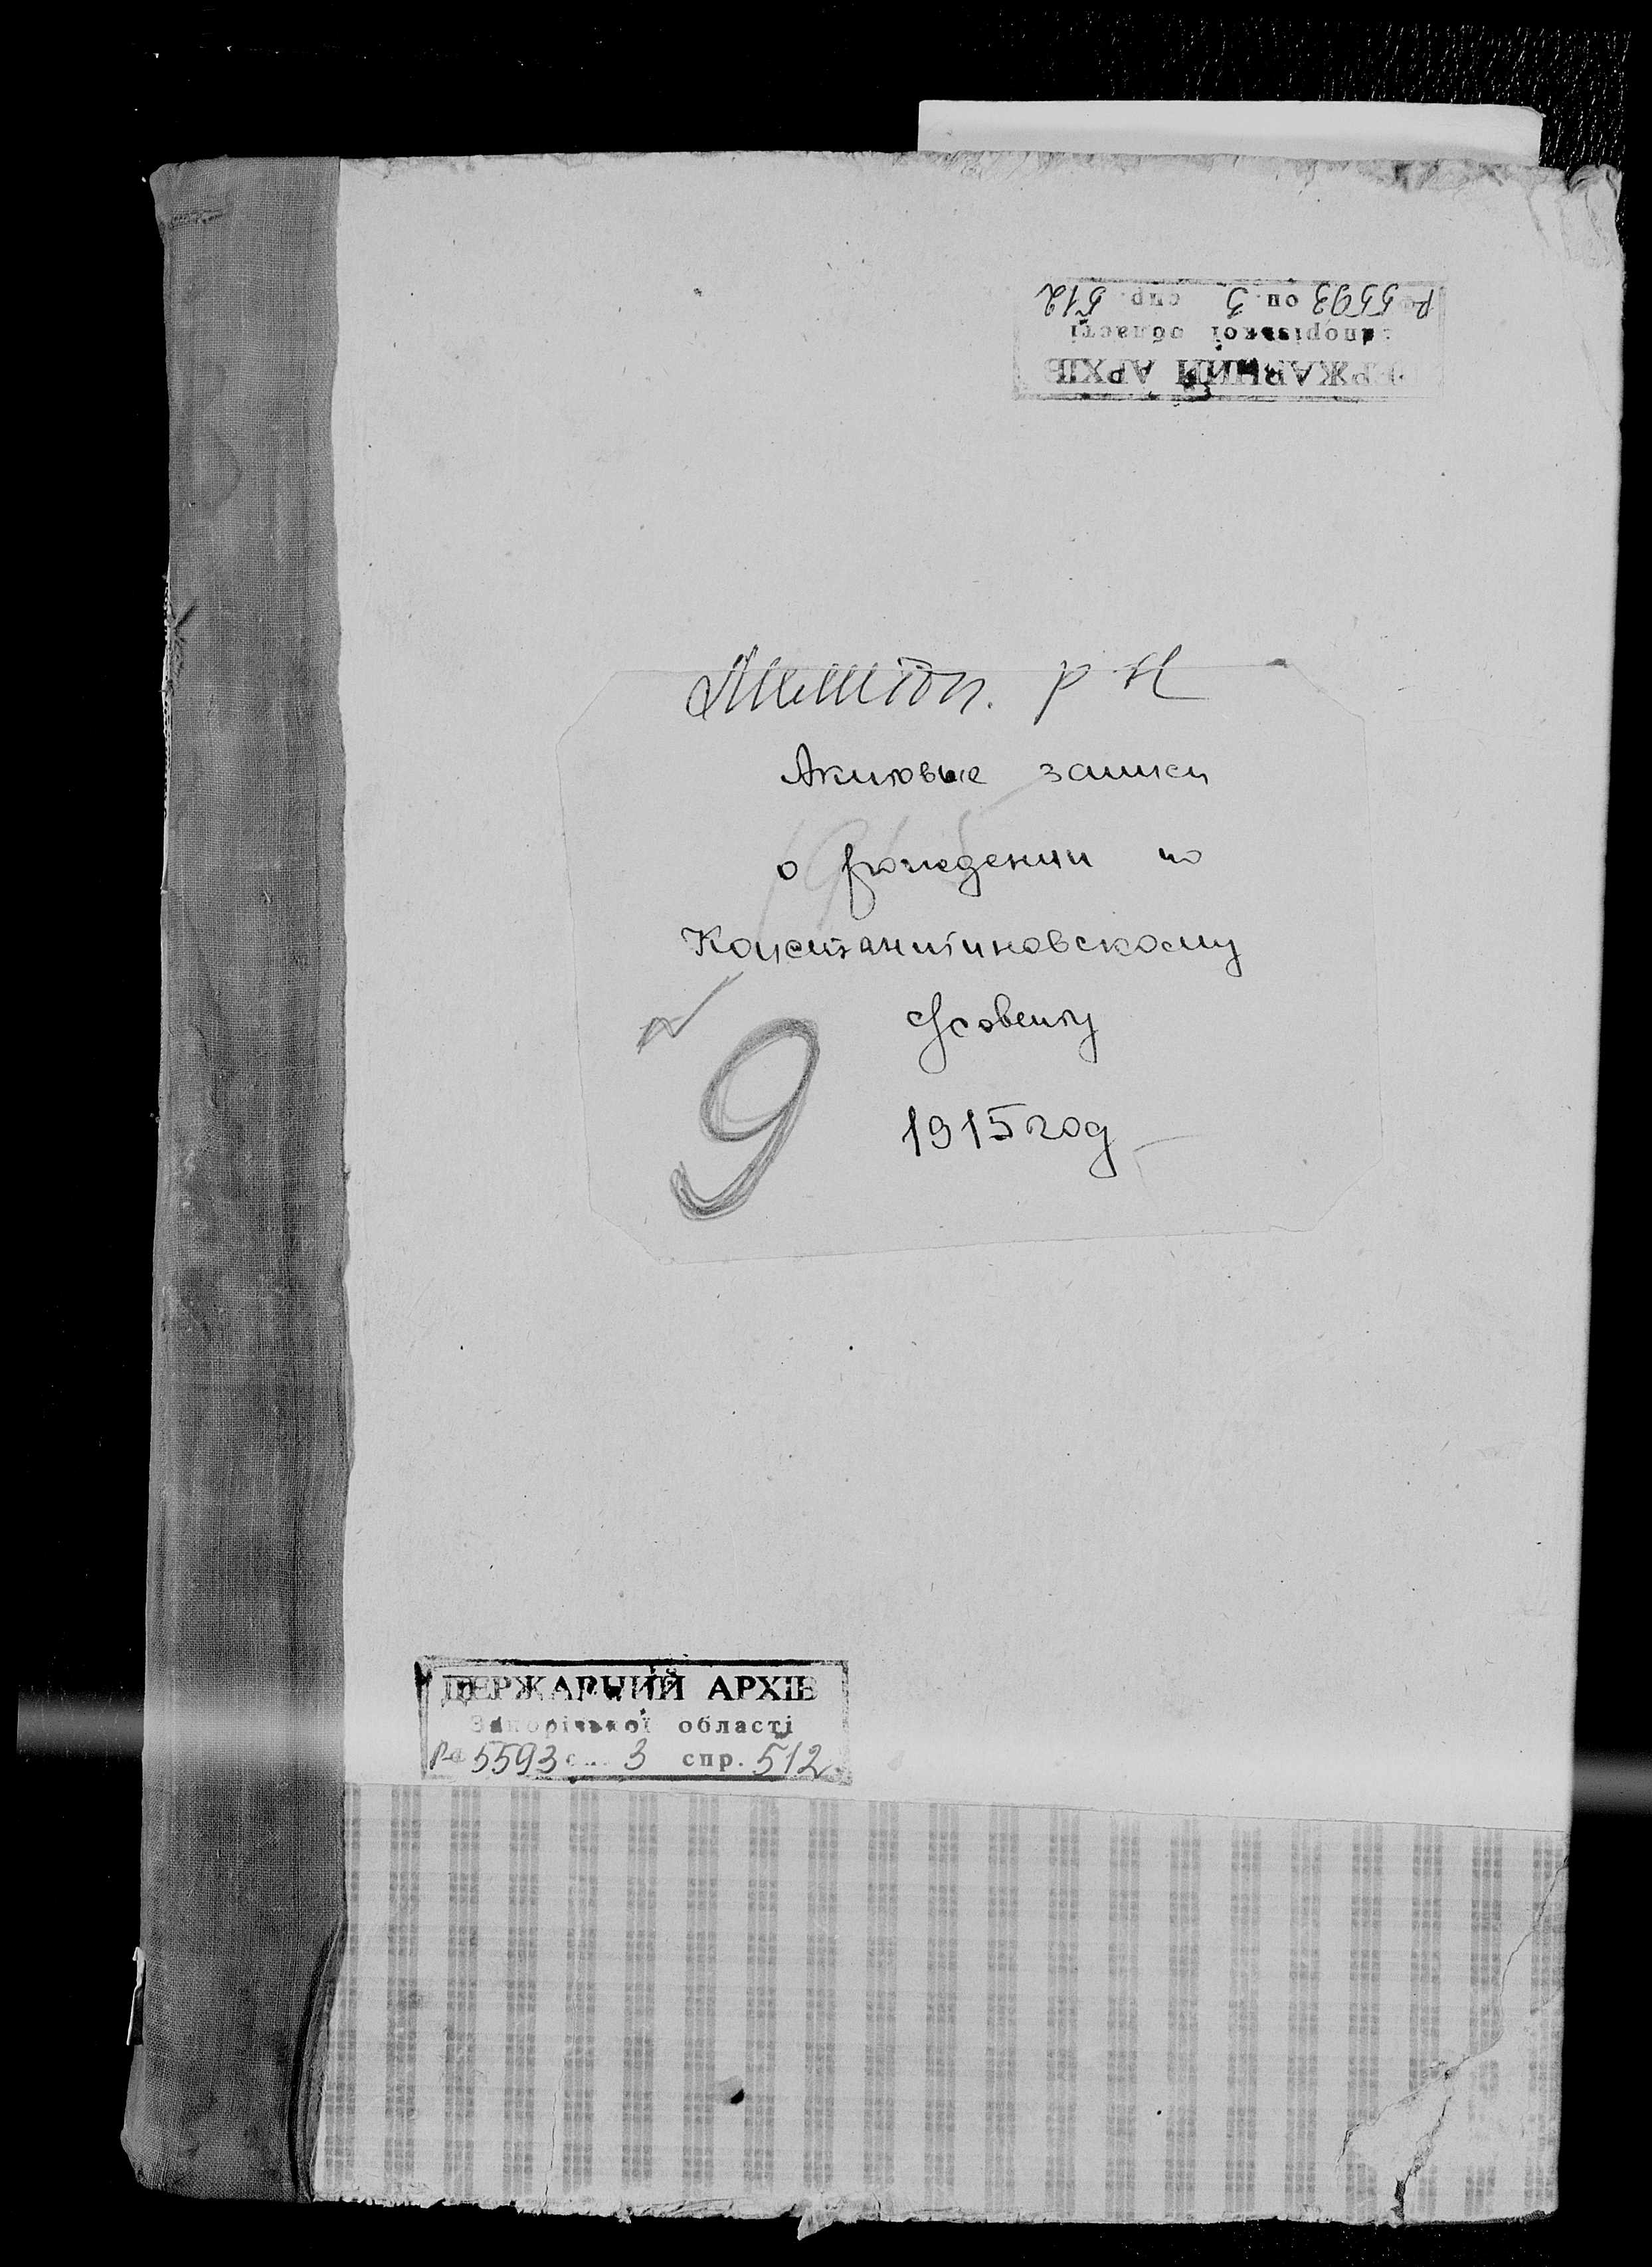 ДЕРЖАВНИЙ АРХІВ
Запорізької області
Р-5593 оп. 3 спр. 512
Мелітоп. р-н
Актовые записи
о рождении по
Константиновскому
с/совету
N 9
1915 год
ДЕРЖАВНИЙ АРХІВ
Запорізької області
Р-5593 оп. 3 спр. 512